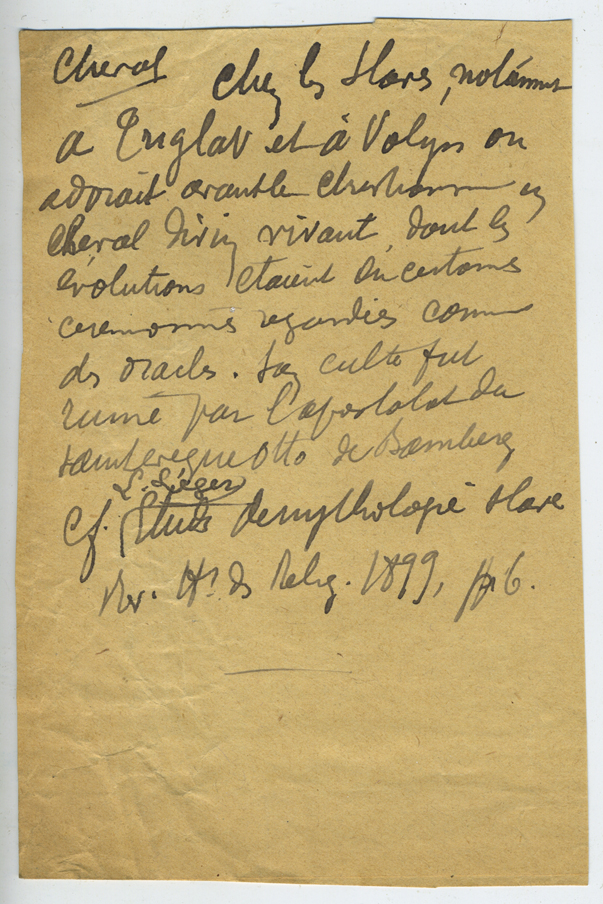 Cheval Chez les Slaves, notamment
à Triglav et à Volyn on
adorait avant le Christianisme un
cheval divin vivant, dont les
évolutions étaient en certaines
cérémonies regardées comme
des oracles. Son culte fut
ruiné par l'apostolat du
saint évêque Otto de Bamberg
L. Léger
Cf. Etudes de mythologie slave
Rev. Hist. des Relig. 1899, 6.